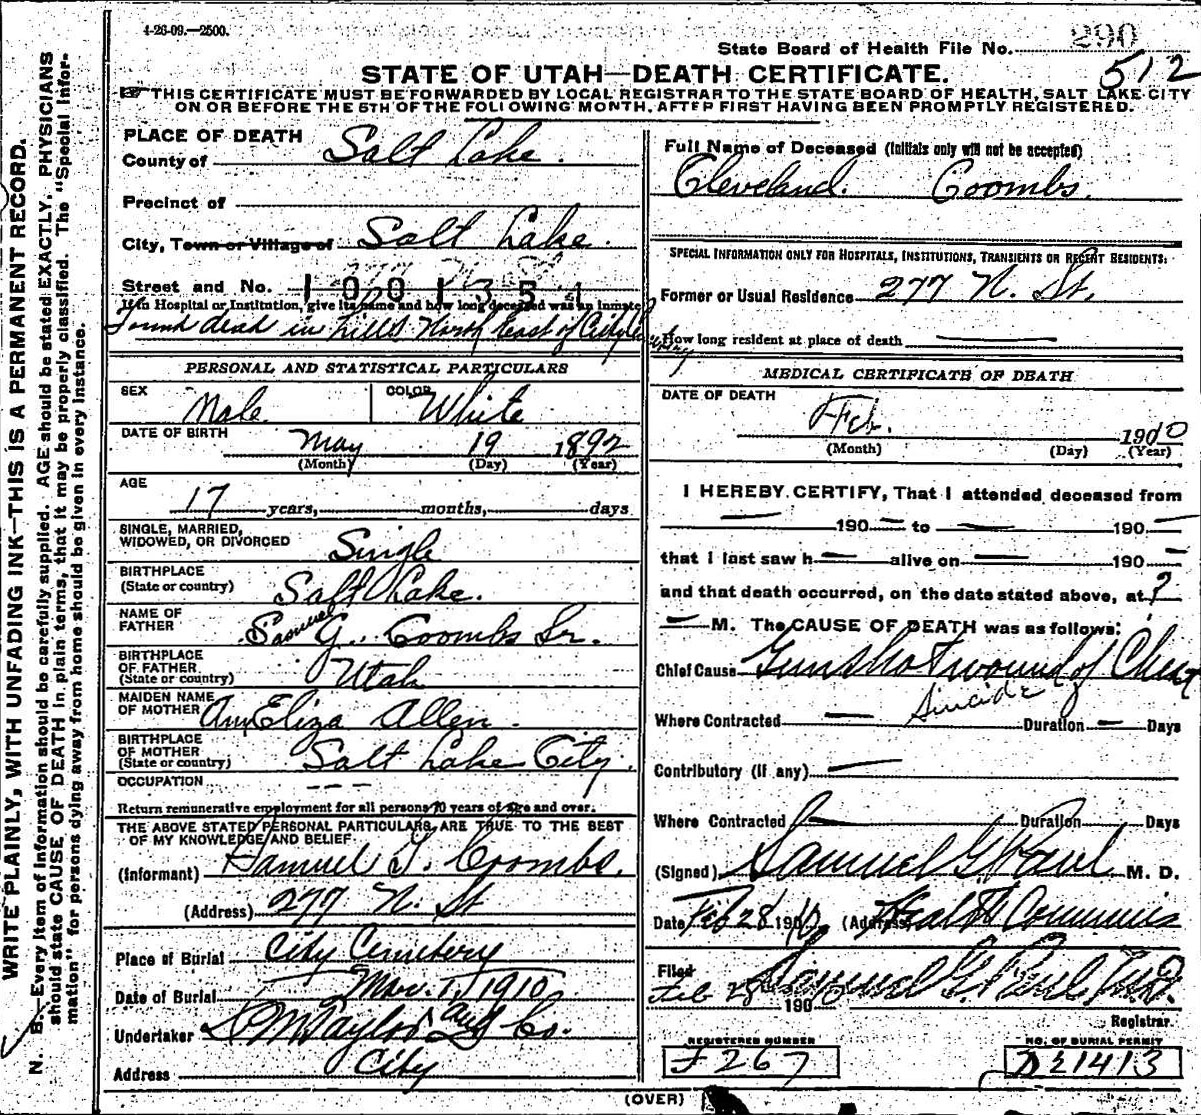 4-26-09.—2500.
State Board of Health File No. 290
512
STATE OF UTAH—DEATH CERTIFICATE.
THIS CERTIFICATE MUST BE FORWARDED BY LOCAL REGISTRAR TO THE STATE BOARD OF HEALTH, SALT LAKE CITY
ON OR BEFORE THE 5TH OF THE FOLLOWING MONTH, AFTER FIRST HAVING BEEN PROMPTLY REGISTERED.
WRITE PLAINLY, WITH UNFADING INK—THIS IS A PERMANENT RECORD.
N. B.—Every item of information should be carefully supplied. AGE should be stated EXACTLY. PHYSICIANS
should state CAUSE OF DEATH in plain terms, that it may be properly classified. The "Special Infor-
mation" for persons dying away from home should be given in every instance.
PLACE OF DEATH
County of Salt Lake.
Precinct of
City, Town or Village of Salt Lake.
Street and No. 1001351
If in Hospital or Institution, give its name and how long deceased was an inmate
Found dead in hills North East of City
PERSONAL AND STATISTICAL PARTICULARS
SEX Male. COLOR White
DATE OF BIRTH May 19 1892
(Month) (Day) (Year)
AGE
17 years, months, days
SINGLE, MARRIED,
WIDOWED, OR DIVORCED Single
BIRTHPLACE
(State or country) Salt Lake.
NAME OF
FATHER Samuel G. Coombs Sr.
BIRTHPLACE
OF FATHER
(State or country) Utah
MAIDEN NAME
OF MOTHER Ann Eliza Allen.
BIRTHPLACE
OF MOTHER
(State or country) Salt Lake City.
OCCUPATION
Return remunerative employment for all persons 10 years of age and over.
THE ABOVE STATED PERSONAL PARTICULARS ARE TRUE TO THE BEST
OF MY KNOWLEDGE AND BELIEF
(Informant) Samuel G. Coombs.
(Address) 277 N. St
Place of Burial City Cemetery
Date of Burial Mar. 1, 1910
Undertaker Taylor and Co.
Address City
Full Name of Deceased (Initials only will not be accepted)
Cleveland. Coombs.
SPECIAL INFORMATION ONLY FOR HOSPITALS, INSTITUTIONS, TRANSIENTS OR RECENT RESIDENTS:
Former or Usual Residence 277 N. St.
How long resident at place of death —
MEDICAL CERTIFICATE OF DEATH
DATE OF DEATH
Feb. 1910
(Month) (Day) (Year)
I HEREBY CERTIFY, That I attended deceased from
— 190 — to — 190 —
that I last saw h — alive on — 190 —
and that death occurred, on the date stated above, at ?
— M. The CAUSE OF DEATH was as follows:
Chief Cause Gunshot wound of Chest
Suicide
Where Contracted — Duration — Days
Contributory (if any) —
Where Contracted — Duration Days
(Signed) Samuel G. Paul M. D.
Date Feb 28 1910 (Address) Health Commis
Filed
Feb 28 190 Samuel G. Paul M.D.
Registrar
REGISTERED NUMBER
F 267
NO. OF BURIAL PERMIT
D21413
(OVER)